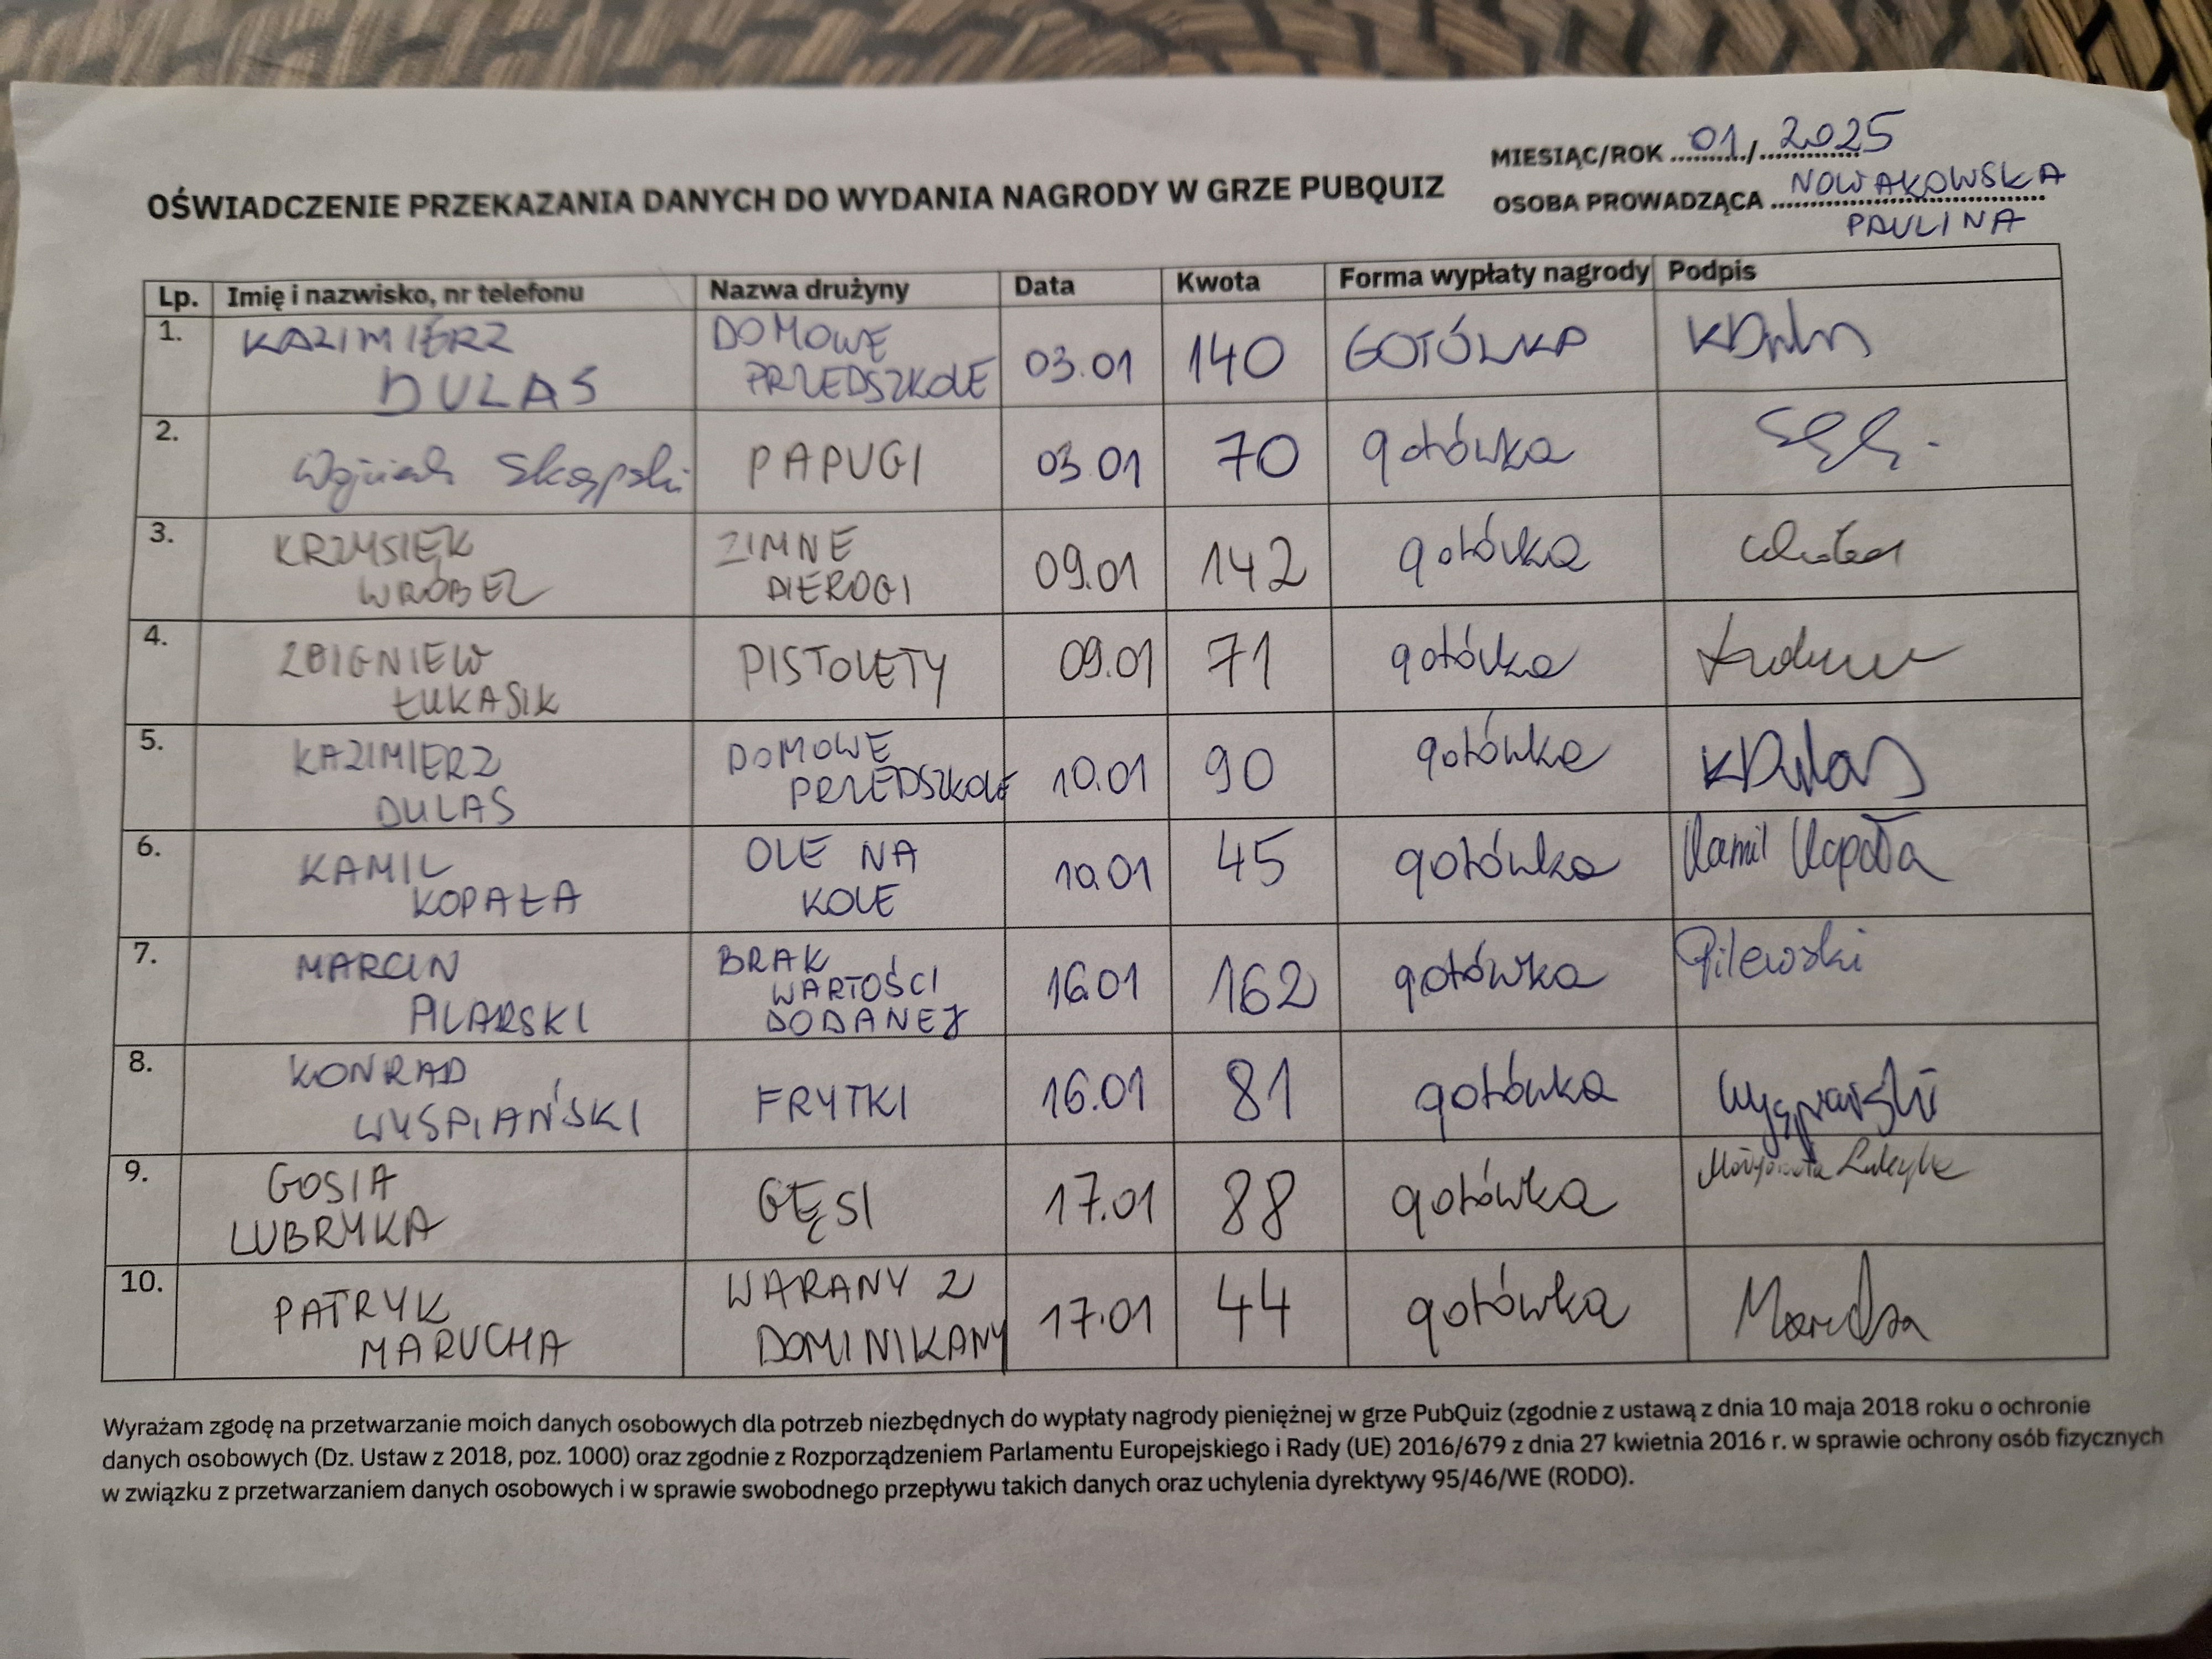 MIESIĄC/ROK 01/2025
OŚWIADCZENIE PRZEKAZANIA DANYCH DO WYDANIA NAGRODY W GRZE PUBQUIZ
OSOBA PROWADZĄCA NOWAKOWSKA
PAULINA
Lp. Imię i nazwisko, nr telefonu Nazwa drużyny Data Kwota Forma wypłaty nagrody Podpis
1. KAZIMIERZ DULAS DOMOWE PRZEDSZKOLE 03.01 140 GOTÓWKA KDulas
2. Wojciech Skąpski PAPUGI 03.01 70 gotówka
3. KRZYSIEK WRÓBEL ZIMNE PIEROGI 09.01 142 gotówka
4. ZBIGNIEW ŁUKASIK PISTOLETY 09.01 71 gotówka
5. KAZIMIERZ DULAS DOMOWE PRZEDSZKOLE 10.01 90 gotówka KDulas
6. KAMIL KOPAŁA OLE NA KOLE 10.01 45 gotówka Kamil Kopała
7. MARCIN PILARSKI BRAK WARTOŚCI DODANEJ 16.01 162 gotówka Pilewski
8. KONRAD WYSPIAŃSKI FRYTKI 16.01 81 gotówka Wyspiański
9. GOSIA LUBRYKA GĘSI 17.01 88 gotówka Małgorzata Lubryka
10. PATRYK MARUCHA WARANY Z DOMINIKANY 17.01 44 gotówka Marucha
Wyrażam zgodę na przetwarzanie moich danych osobowych dla potrzeb niezbędnych do wypłaty nagrody pieniężnej w grze PubQuiz (zgodnie z ustawą z dnia 10 maja 2018 roku o ochronie
danych osobowych (Dz. Ustaw z 2018, poz. 1000) oraz zgodnie z Rozporządzeniem Parlamentu Europejskiego i Rady (UE) 2016/679 z dnia 27 kwietnia 2016 r. w sprawie ochrony osób fizycznych
w związku z przetwarzaniem danych osobowych i w sprawie swobodnego przepływu takich danych oraz uchylenia dyrektywy 95/46/WE (RODO).